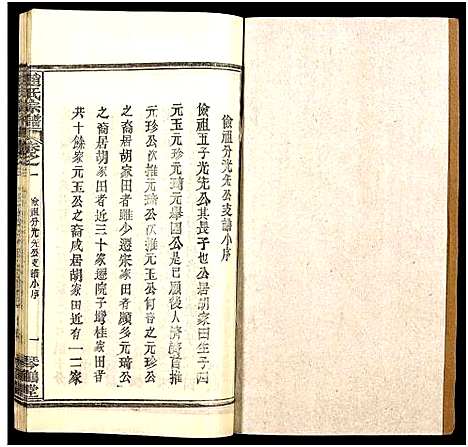 儉祖分光先公支譜小序
儉祖五子光先公其長子也公居胡家田生子四
元玉元珍元琦元舉因公是已願後人濟濟首推
元珍公次推元玉公何言之元珍
之裔居胡家田者雖少遷宋家田者頗多元琦公
之裔居胡家田者近三十家遷院子塆桂家田者
共十餘家元玉公之裔咸居胡家田近有一二家
氏宗譜
卷之一
儉祖分光先公支譜小序
一
琴鶴堂